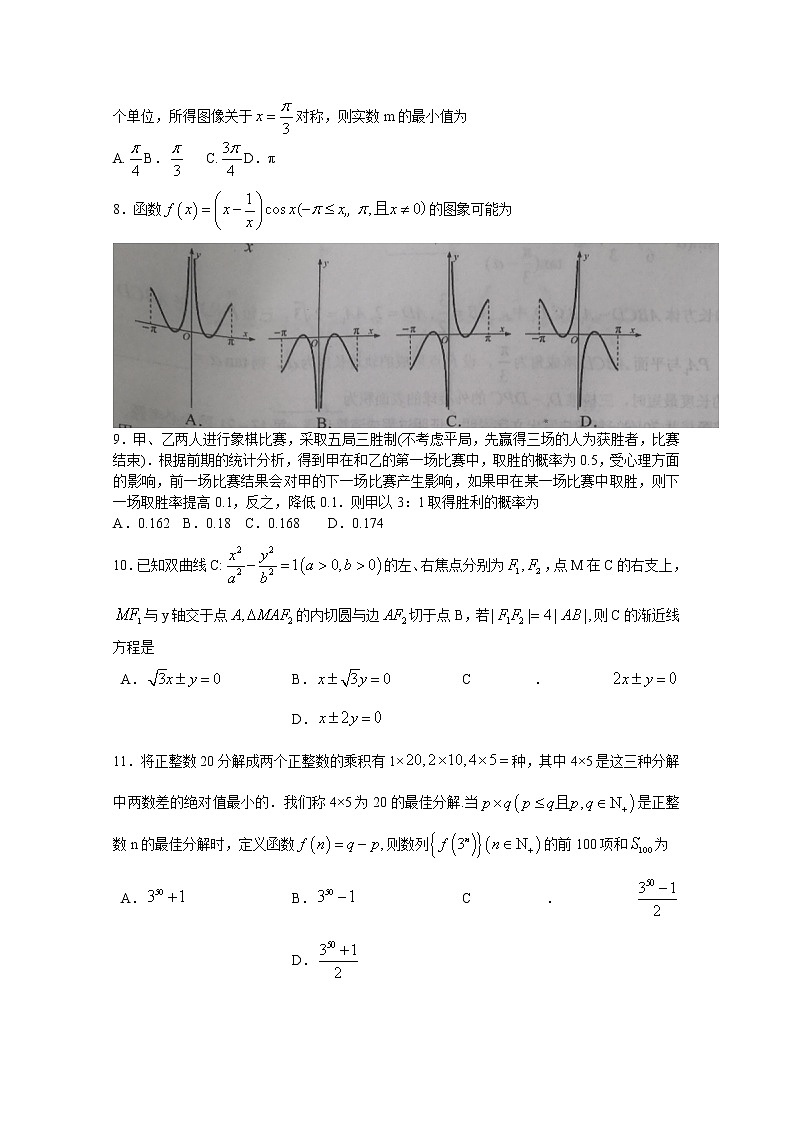 个单位，所得图像关于 x = π/3 对称，则实数 m 的最小值为
A. π/4 B． π/3 C. 3π/4 D．π
8．函数 f(x) = (x − 1/x) cos x(−π ≤ x,, π,且x ≠ 0) 的图象可能为
x
y y y y
−π O π x −π O π x −π O π x −π O π x
A. B. C. D.
9．甲、乙两人进行象棋比赛，采取五局三胜制(不考虑平局，先赢得三场的人为获胜者，比赛
结束)．根据前期的统计分析，得到甲在和乙的第一场比赛中，取胜的概率为 0.5，受心理方面
的影响，前一场比赛结果会对甲的下一场比赛产生影响，如果甲在某一场比赛中取胜，则下
一场取胜率提高 0.1，反之，降低 0.1．则甲以 3：1 取得胜利的概率为
A．0.162 B．0.18 C．0.168 D．0.174
10.已知双曲线 C: x²/a² − y²/b² = 1(a > 0, b > 0) 的左、右焦点分别为 F₁, F₂ ，点 M 在 C 的右支上，
MF₁ 与 y 轴交于点 A, ΔMAF₂ 的内切圆与边 AF₂ 切于点 B，若 | F₁F₂ |= 4 | AB |, 则 C 的渐近线
方程是
A．√3x ± y = 0 B．x ± √3y = 0 C ． 2x ± y = 0
D．x ± 2y = 0
11．将正整数 20 分解成两个正整数的乘积有 1×20, 2×10, 4×5 = 种，其中 4×5 是这三种分解
中两数差的绝对值最小的．我们称 4×5 为 20 的最佳分解.当 p×q(p ≤ q且p, q ∈ N₊) 是正整
数 n 的最佳分解时，定义函数 f(n) = q − p, 则数列 {f(3ⁿ)}(n ∈ N₊) 的前 100 项和 S₁₀₀ 为
A．3⁵⁰ + 1 B．3⁵⁰ − 1 C ． (3⁵⁰ − 1)/2
D．(3⁵⁰ + 1)/2